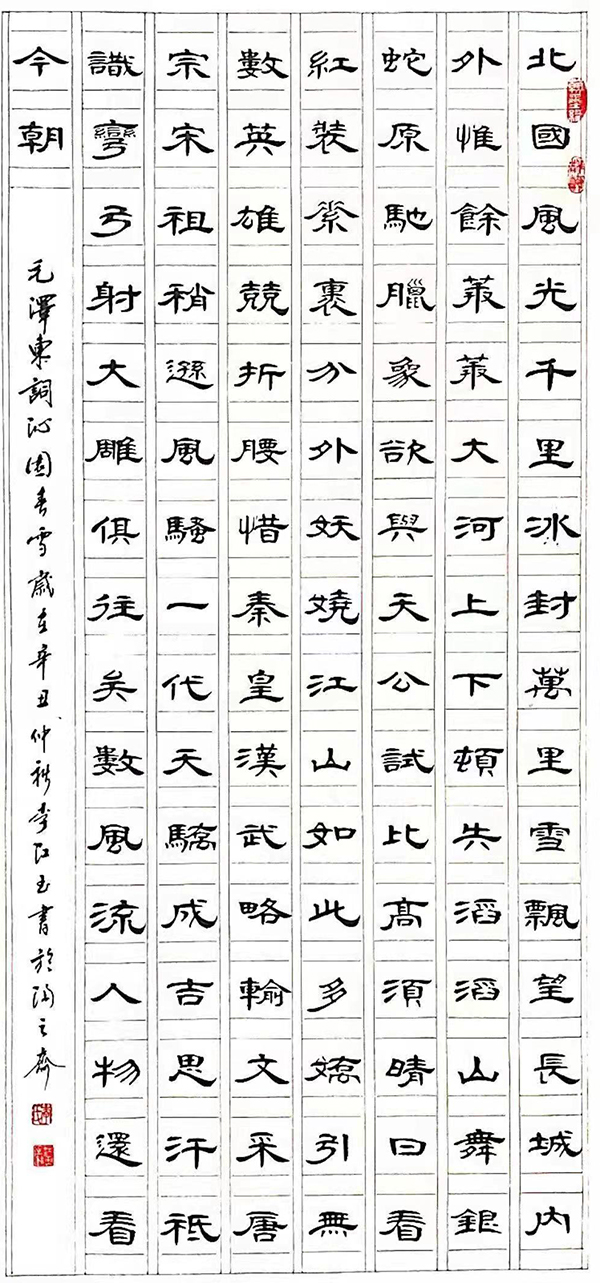 北國風光千里冰封萬里雪飄望長城內
外惟餘莽莽大河上下頓失滔滔山舞銀
蛇原馳臘象欲與天公試比高須晴日看
紅裝素裹分外妖嬈江山如此多嬌引無
數英雄競折腰惜秦皇漢武略輸文采唐
宗宋祖稍遜風騷一代天驕成吉思汗祗
識彎弓射大雕俱往矣數風流人物還看
今朝
毛澤東詞沁園春雪歲在辛丑仲秋李江玉書於陶之齋